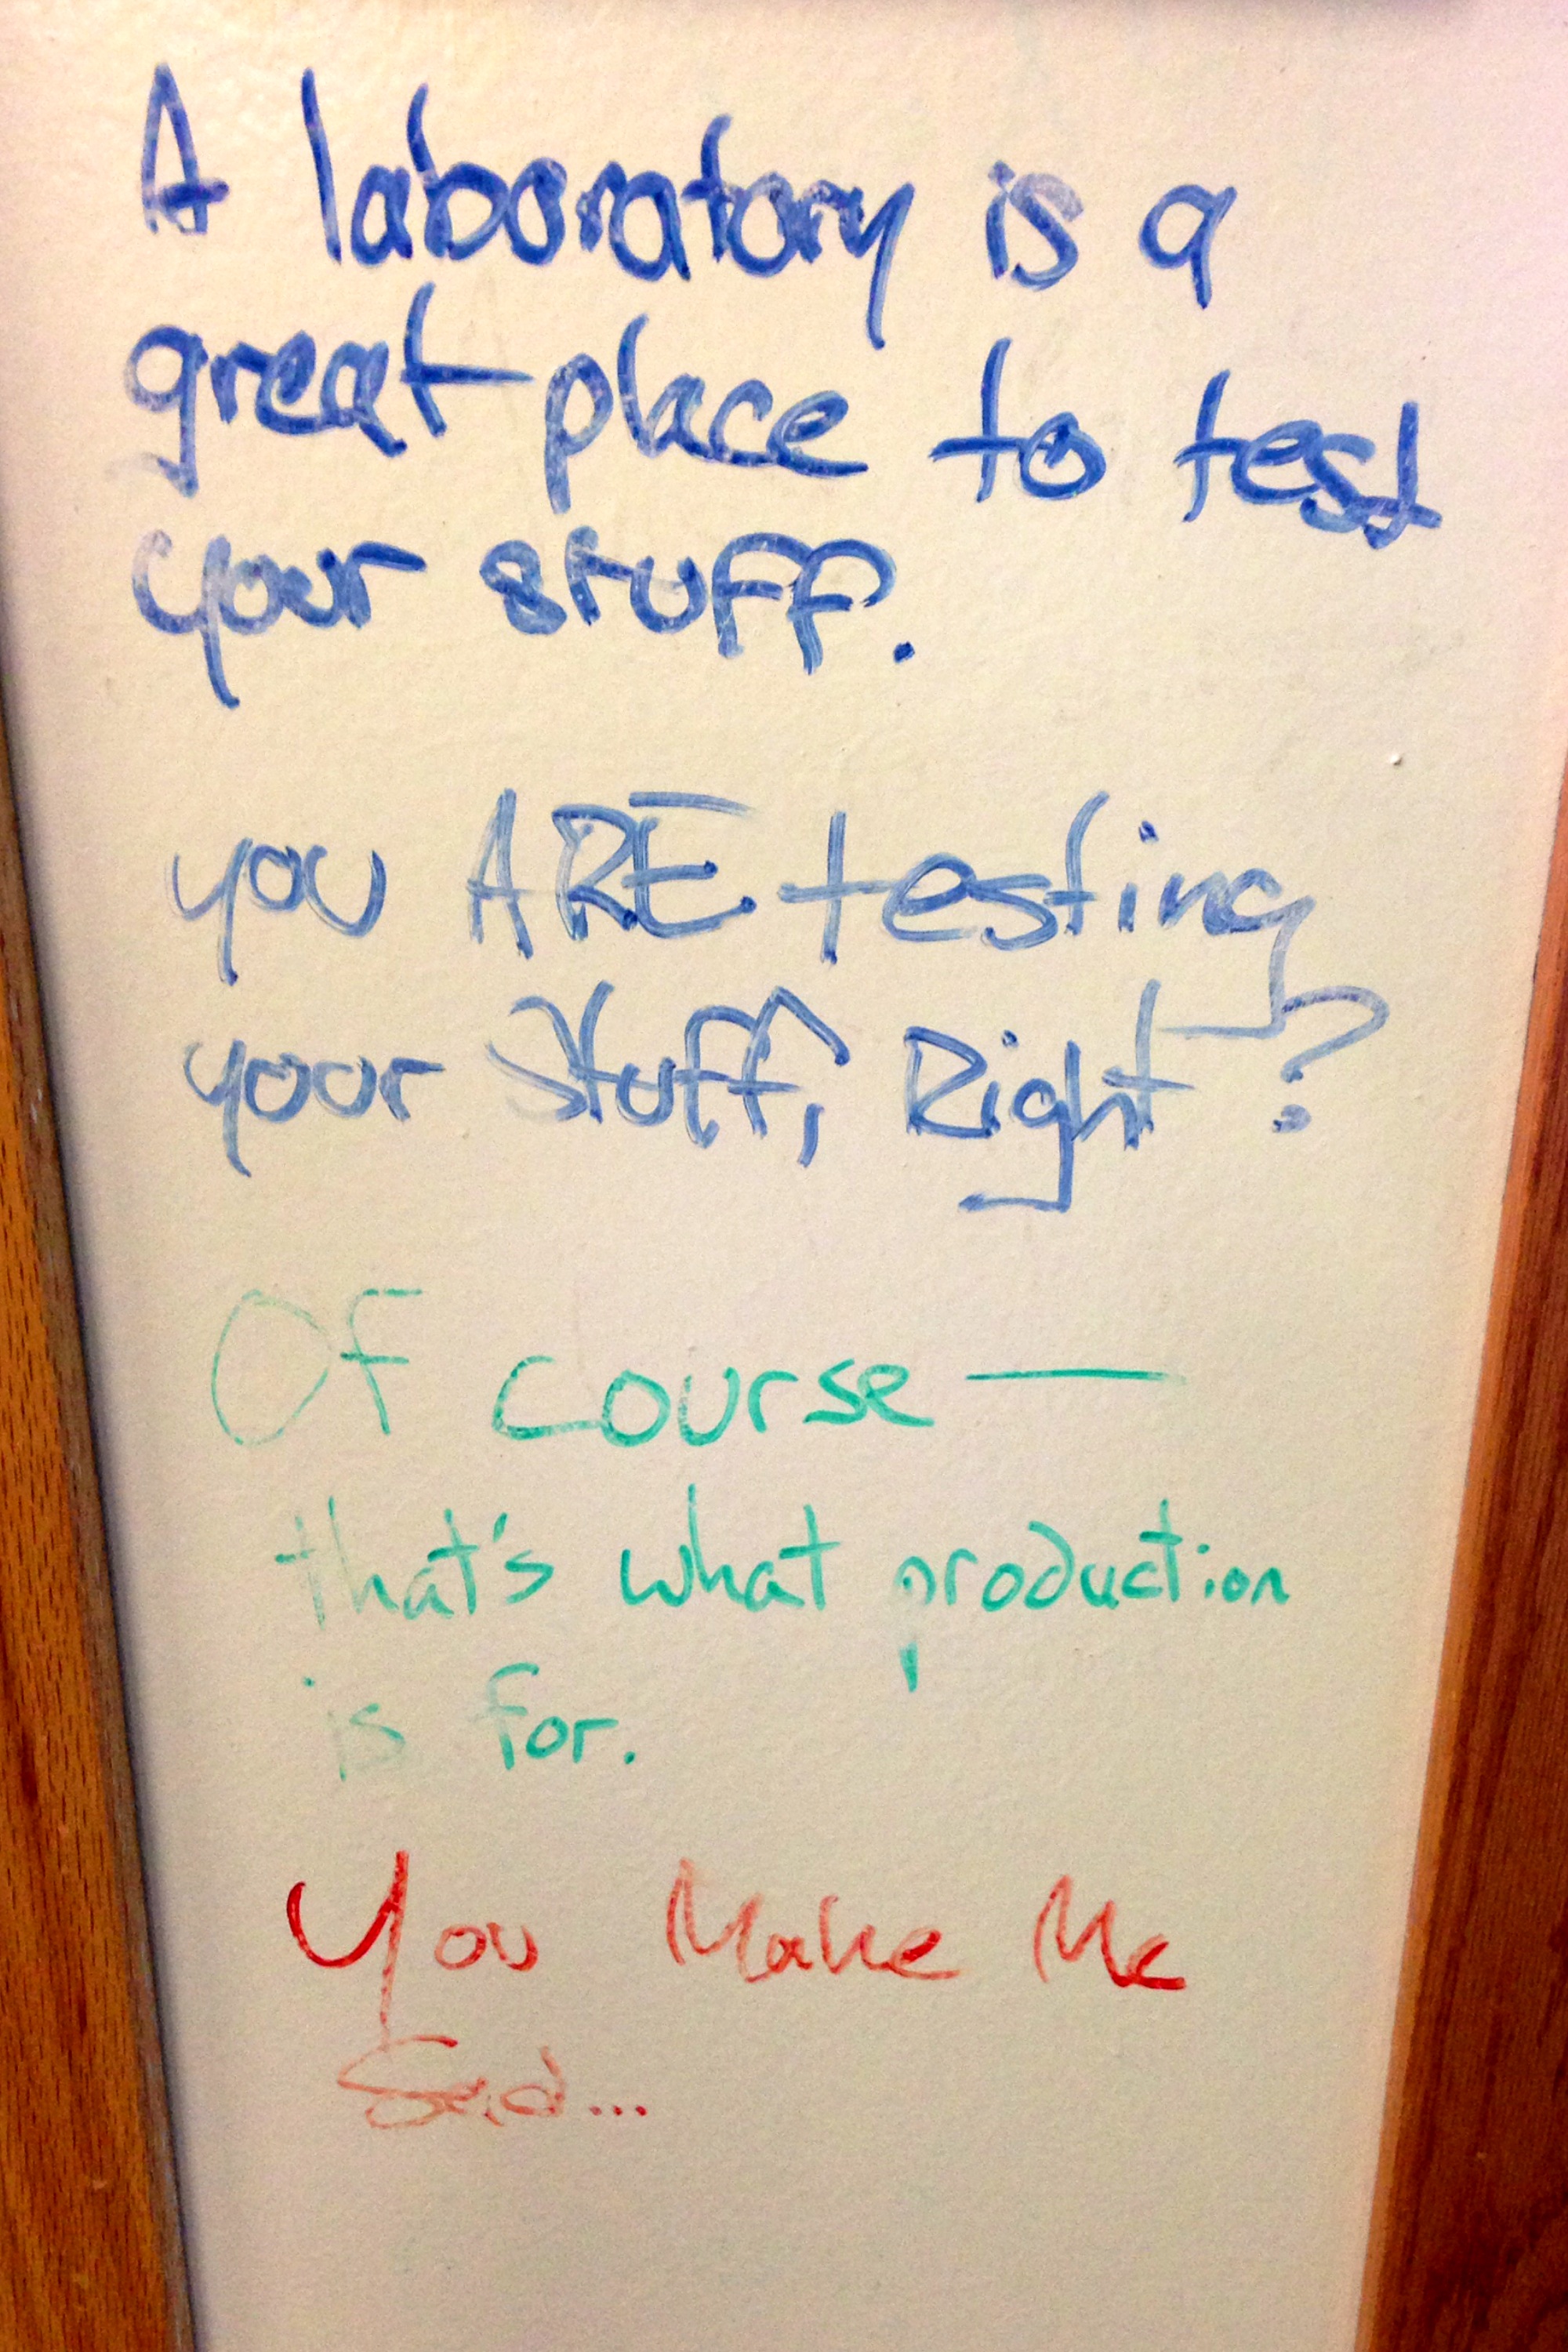 A laboratory is a
great place to test
your stuff.
you ARE testing
your stuff, Right?
Of course —
that's what production
is for.
You Make Me
Sad...